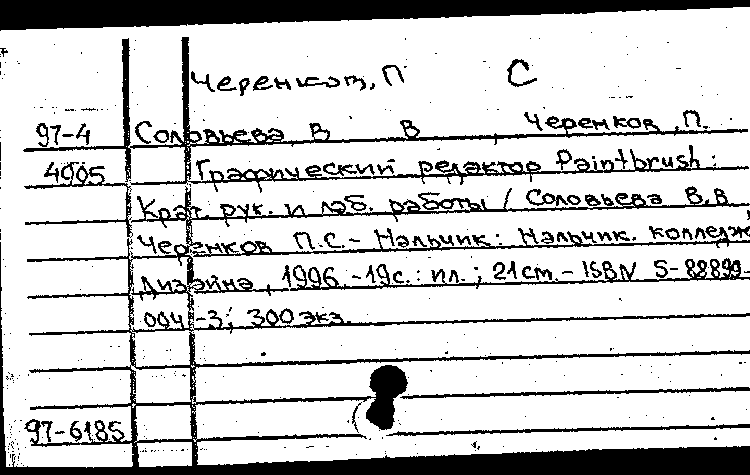 Черенков, П С
97-4 Соловьева, В В , Черенков, П.
4905 Графический редактор Paintbrush:
Крат. рук. и лаб. работы / Соловьева В.В.,
Черенков П.С.- Нальчик: Нальчик. колледж
Дизайна, 1996.-19с.: ил.; 21см.- ISBN 5-88899-
004-3; 300 экз.
97-6185